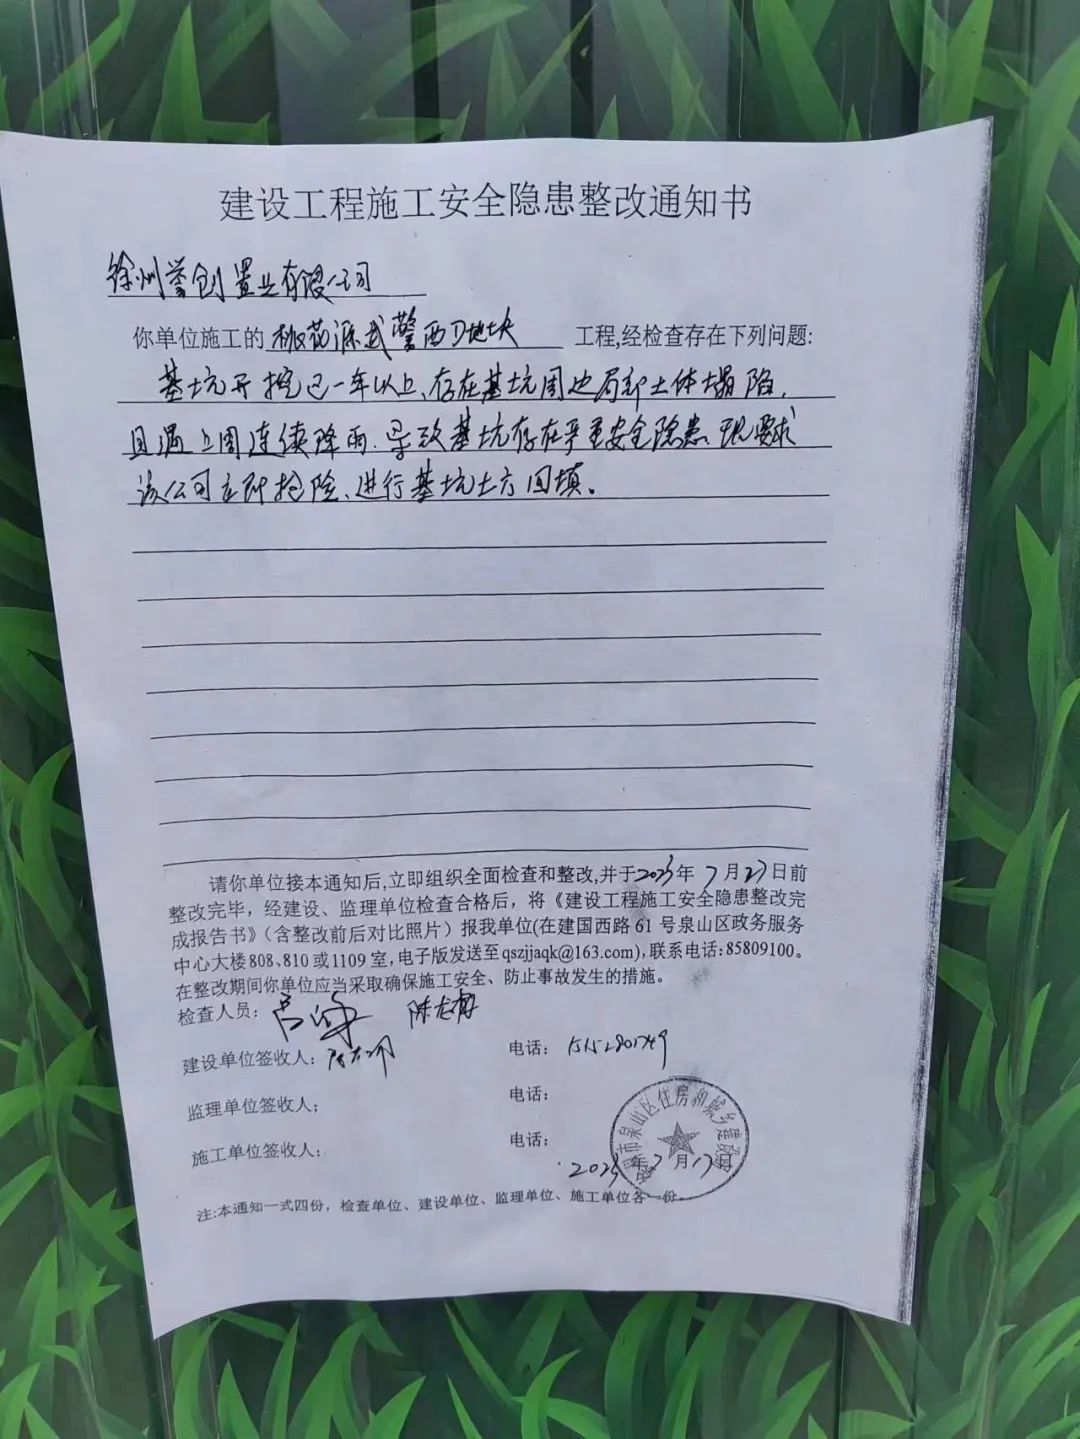 建设工程施工安全隐患整改通知书
徐州誉创置业有限公司
你单位施工的 桃花源武警西D地块 工程,经检查存在下列问题:
基坑开挖已一年以上、存在基坑周边局部土体塌陷,
且遇上周连续降雨,导致基坑存在严重安全隐患 现要求
该公司立即抢险、进行基坑土方回填。
请你单位接本通知后,立即组织全面检查和整改,并于2023年7月27日前
整改完毕，经建设、监理单位检查合格后，将《建设工程施工安全隐患整改完
成报告书》（含整改前后对比照片）报我单位(在建国西路61号泉山区政务服务
中心大楼808、810或1109室,电子版发送至qszjjaqk@163.com),联系电话:85809100.
在整改期间你单位应当采取确保施工安全、防止事故发生的措施。
检查人员:
建设单位签收人: 电话:
监理单位签收人; 电话:
施工单位签收人: 电话:
市泉山区住房和城乡建设
2023年7月17日
注:本通知一式四份，检查单位、建设单位、监理单位、施工单位各一份。